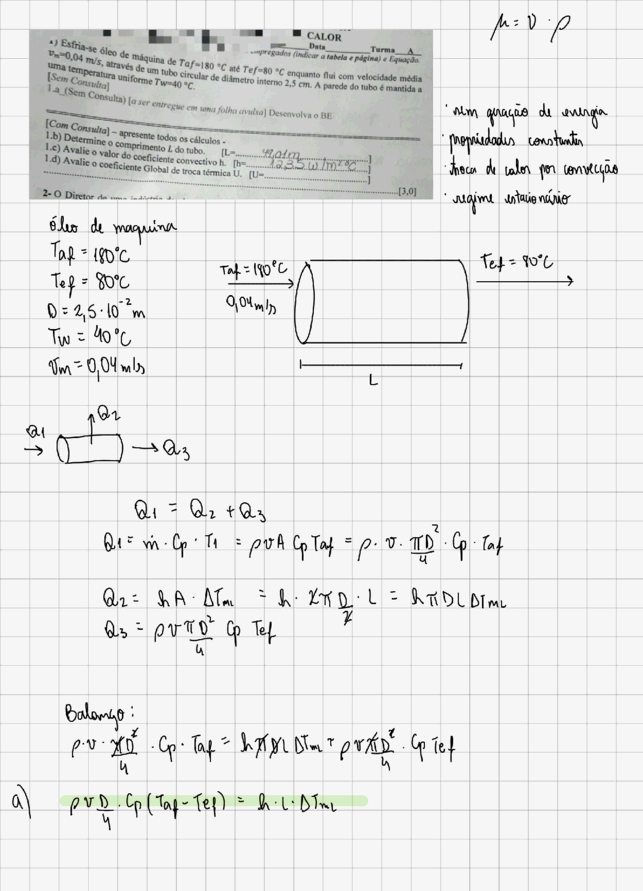 μ = ν · ρ
CALOR
Data Turma A
empregados (indicar a tabela e página) e Equação
a) Esfria-se óleo de máquina de Taf=180 °C até Tef=80 °C enquanto flui com velocidade média
vm=0,04 m/s, através de um tubo circular de diâmetro interno 2,5 cm. A parede do tubo é mantida a
uma temperatura uniforme Tw=40 °C.
[Sem Consulta]
1.a_(Sem Consulta) [a ser entregue em uma folha avulsa] Desenvolva o BE
[Com Consulta] – apresente todos os cálculos -
1.b) Determine o comprimento L do tubo. [L= m]
1.c) Avalie o valor do coeficiente convectivo h. [h= W/m²°C]
1.d) Avalie o coeficiente Global de troca térmica U. [U= ]
[3,0]
2- O Diretor de uma indústria
· sem geração de energia
· propriedades constantes
· troca de calor por convecção
· regime estacionário
óleo de maquina
Taf = 180°C
Tef = 80°C
D = 2,5·10⁻² m
Tw = 40°C
Vm = 0,04 m/s
Taf = 180°C
0,04 m/s
Tef = 80°C
L
Q1
Q2
Q3
Q1 = Q2 + Q3
Q1 = ṁ · Cp · T1 = ρvA Cp Taf = ρ · v · πD²/4 · Cp · Taf
Q2 = hA · ΔTmL = h · 2π D/2 · L = hπDL ΔTmL
Q3 = ρvπD²/4 Cp Tef
Balanço:
ρ·v · πD²/4 · Cp · Taf = hπDL ΔTmL + ρvπD²/4 · Cp Tef
a) ρvD/4 · Cp (Taf - Tef) = h · L · ΔTmL